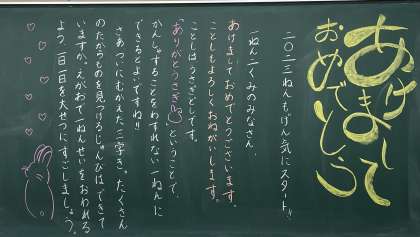 あけまして
おめでとう
二〇二三ねんもげん気にスタート!!
一ねん二くみのみなさん、
あけましておめでとうございます。
ことしもよろしくおねがいします。
ことしはうさぎどしです。
「ありがとうさぎ」ということで、
かんしゃすることをわすれない一ねんに
できるとよいですね!!
さあついにむかえた三学き。たくさん
のたからものを見つけるじゅんびはできて
いますか。えがおで一ねんせいをおわれる
よう、一日一日を大せつにすごしましょう。